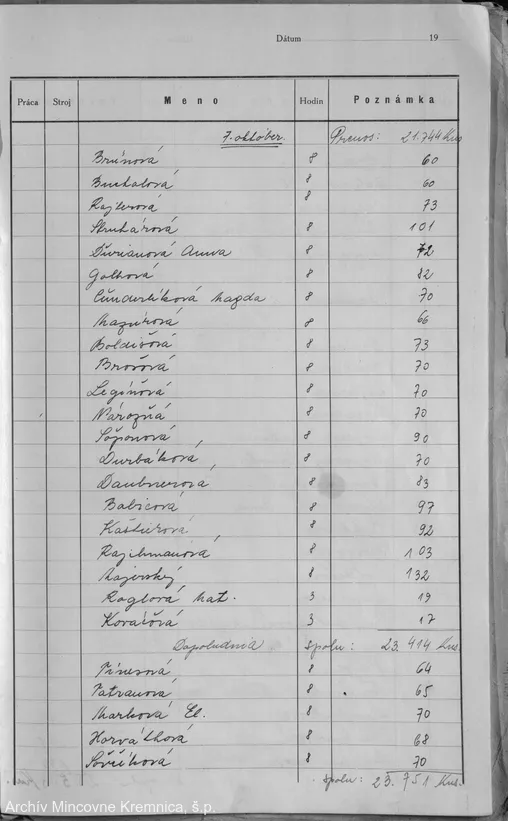 Dátum 19
Práca Stroj Meno Hodín Poznámka
7. október. Prenos: 21.744 Kus
Brúnová 8 60
Buchalová 8 60
Rajterová 8 73
Struhárová 8 101
Ďurianová Anna 8 72
Golhová 8 82
Čunderlíková Magda 8 70
Mazúrová 8 66
Boldišová 8 73
Brošová 8 70
Legíňová 8 70
Nárožná 8 70
Šoponová 8 90
Durbáková 8 70
Daubnerová 8 83
Babicová 8 97
8 92
Rajchmanová 8 103
Majerský 8 132
Raglová Mat. 3 19
Kováčová 3 17
Dopoludnia spolu: 23.414 Kus.
8 64
Patranová 8 65
Marková El. 8 70
Horváthová 8 68
8 70
spolu: 23.751 Kus.
Archív Mincovne Kremnica, š.p.